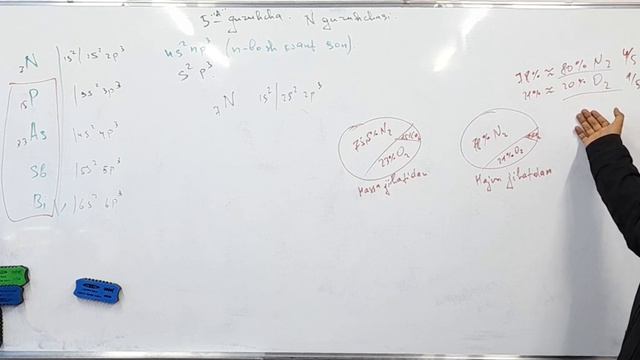 5-"A" guruhcha. N guruhchasi.
ns² np³ (n-bosh kvant son)
s² p³
₇N 1s²/2s² 2p³
₁₅P /3s² 3p³
₃₃As /4s² 4p³
Sb /5s² 5p³
Bi /6s² 6p³
₇N 1s²/2s² 2p³
75,5% N₂
23% O₂
Massa jihatidan
78% N₂
21% O₂
Hajm jihatdan
78% ≈ 80% N₂ 4/5
21% ≈ 20% O₂ 1/5